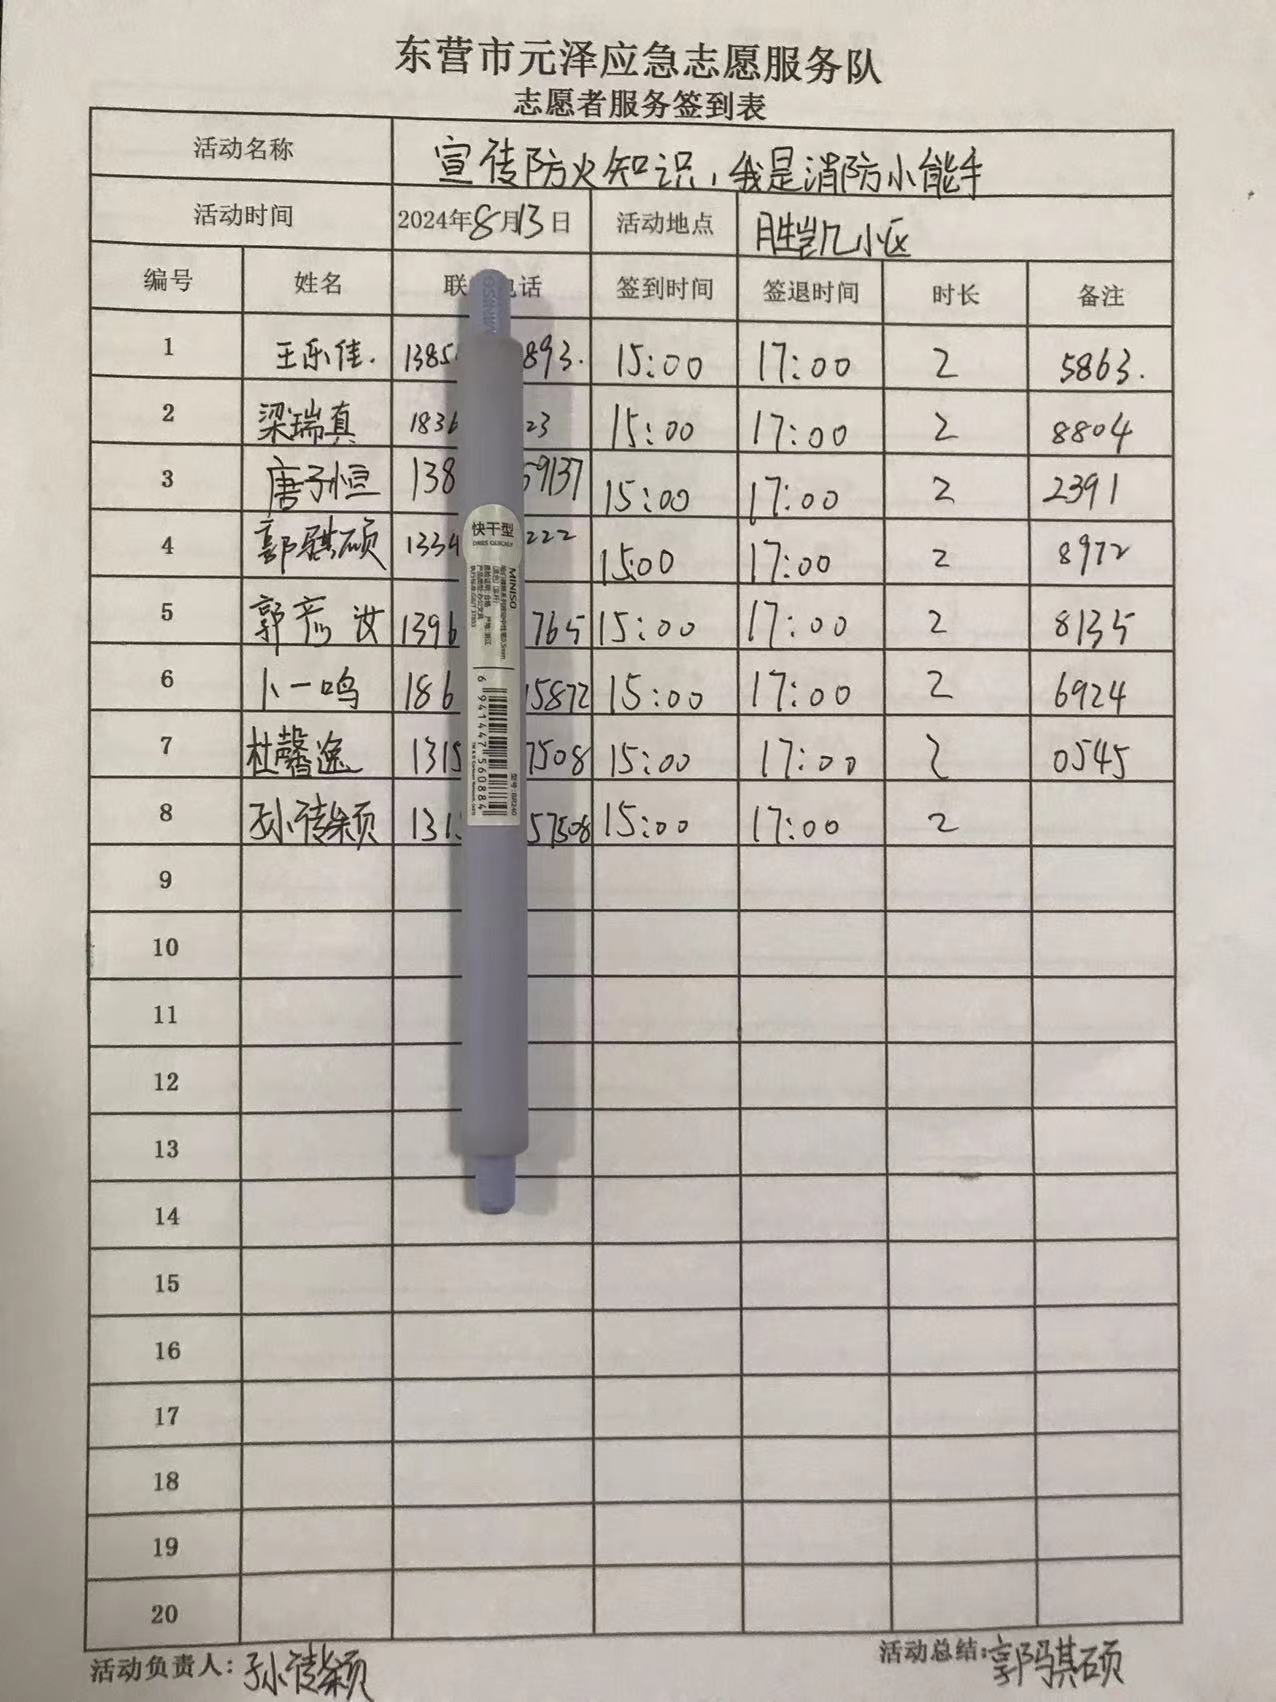 东营市元泽应急志愿服务队
志愿者服务签到表
活动名称 宣传防火知识，我是消防小能手
活动时间 2024年8月13日 活动地点 胜凯小区
编号 姓名 联 电话 签到时间 签退时间 时长 备注
1 王乐佳. 1385 893. 15:00 17:00 2 5863.
2 梁瑞真 1836 23 15:00 17:00 2 8804
3 唐子恒 138 59137 15:00 17:00 2 2391
4 郭骐硕 1334 222 15:00 17:00 2 8972
5 郭彦汝 1396 765 15:00 17:00 2 8135
6 卜一鸣 186 15872 15:00 17:00 2 6924
7 杜馨逸 1315 7508 15:00 17:00 2 0545
8 孙倩颖 131 57508 15:00 17:00 2
9
10
11
12
13
14
15
16
17
18
19
20
活动负责人：孙倩颖 活动总结：郭骐硕
MINISO
快干型
DRIES QUICKLY
MINISO
6 941447 560884